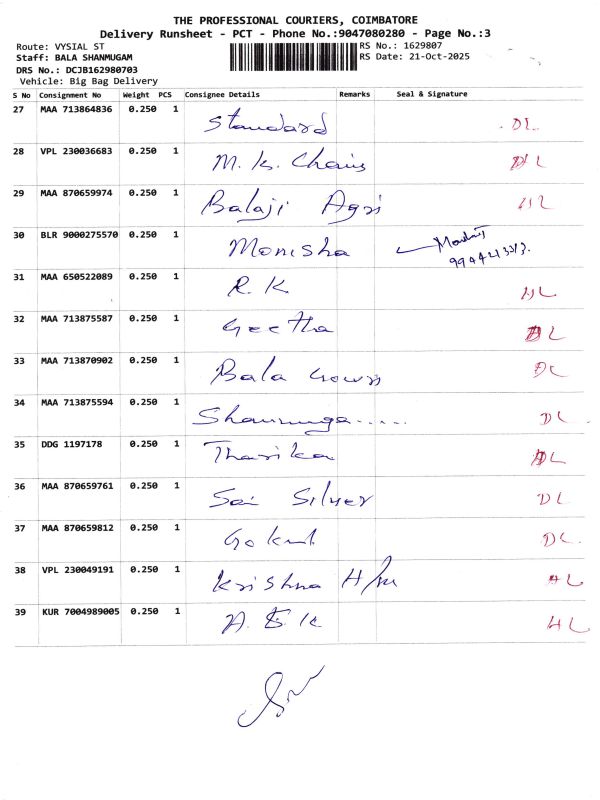 THE PROFESSIONAL COURIERS, COIMBATORE
Delivery Runsheet - PCT - Phone No.:9047080280 - Page No.:3
Route: VYSIAL ST RS No.: 1629807
Staff: BALA SHANMUGAM RS Date: 21-Oct-2025
DRS No.: DCJB162980703
Vehicle: Big Bag Delivery
S No Consignment No Weight PCS Consignee Details Remarks Seal & Signature
27 MAA 713864836 0.250 1 Standard DL
28 VPL 230036683 0.250 1 M.K. Chains DL
29 MAA 870659974 0.250 1 Balaji Agri
30 BLR 9000275570 0.250 1 Monisha
31 MAA 650522089 0.250 1 R.K
32 MAA 713875587 0.250 1 Geetha DL
33 MAA 713870902 0.250 1 Bala DL
34 MAA 713875594 0.250 1 Shanmuga..... DL
35 DDG 1197178 0.250 1 Tharika DL
36 MAA 870659761 0.250 1 Sai Silver DL
37 MAA 870659812 0.250 1 Gokul DL
38 VPL 230049191 0.250 1 Krishna H/M HL
39 KUR 7004989005 0.250 1 HL